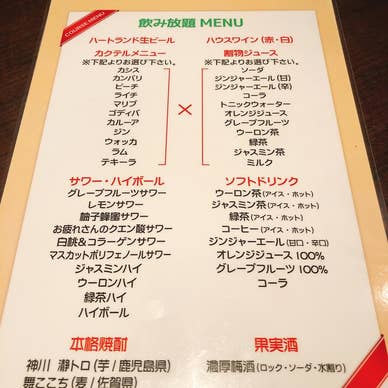 COURSE MENU
飲み放題 MENU
ハートランド生ビール
ハウスワイン (赤・白)
カクテルメニュー
※下記よりお選び下さい。
カシス
カンパリ
ピーチ
ライチ
マリブ
ゴディバ
カルーア
ジン
ウォッカ
ラム
テキーラ
×
割物ジュース
※下記よりお選び下さい。
ソーダ
ジンジャーエール (甘)
ジンジャーエール (辛)
コーラ
トニックウォーター
オレンジジュース
グレープフルーツ
ウーロン茶
緑茶
ジャスミン茶
ミルク
サワー・ハイボール
グレープフルーツサワー
レモンサワー
柚子蜂蜜サワー
お疲れさんのクエン酸サワー
白桃&コラーゲンサワー
マスカットポリフェノールサワー
ジャスミンハイ
ウーロンハイ
緑茶ハイ
ハイボール
ソフトドリンク
ウーロン茶 (アイス・ホット)
ジャスミン茶 (アイス・ホット)
緑茶 (アイス・ホット)
コーヒー (アイス・ホット)
ジンジャーエール (甘口・辛口)
オレンジジュース 100%
グレープフルーツ 100%
コーラ
本格焼酎
神川 瀞トロ (芋/鹿児島県)
舞ここち (麦/佐賀県)
果実酒
濃厚梅酒 (ロック・ソーダ・水割り)